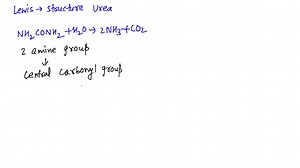 Lewis → Structure Urea
NH₂CONH₂ + H₂O → 2NH₃ + CO₂
2 amine group
↓
Central Carbonyl group